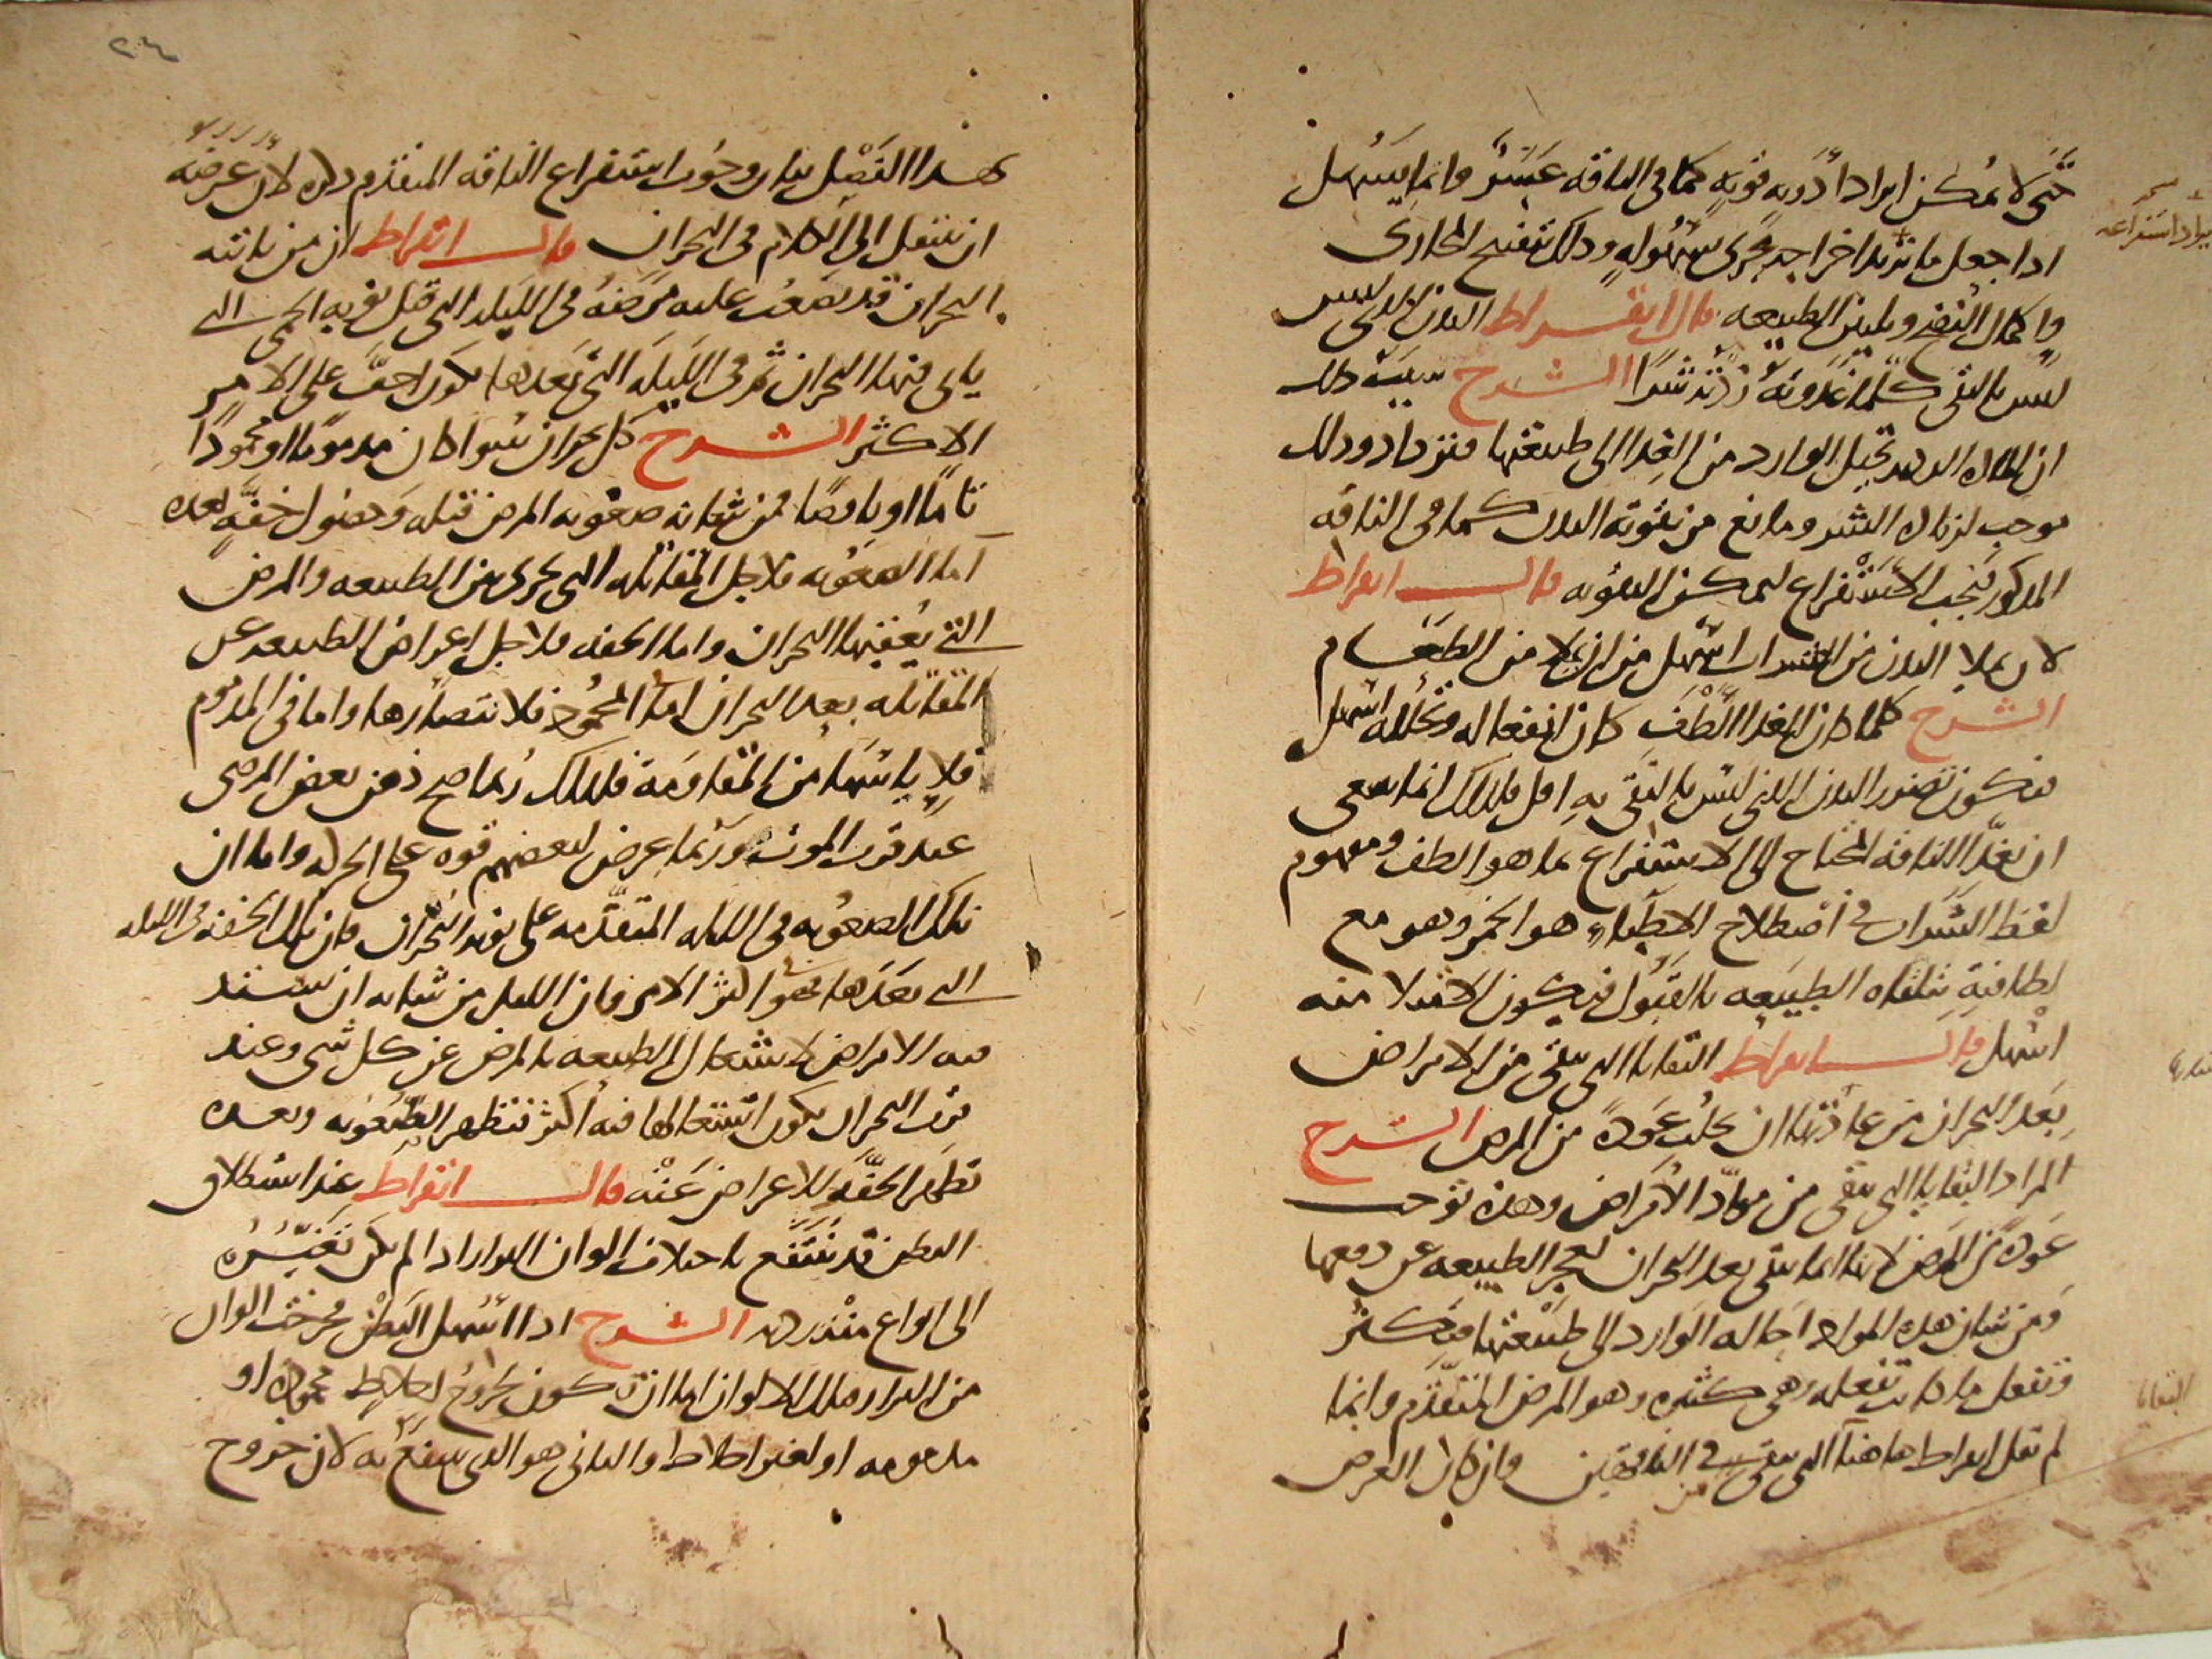 حتى لا يمكن ايراد ادوية قوية كما فى الناقه عسر وانما يسهل
اذا جعل ما نريد اخراجه يجرى بسهولة وذلك بتفتيح المجارى
واكمال النضج وتليين الطبيعه قال ابقراط البدن الذى ليس
ليس بالنقى كلما غذوته زدته شرا الشرح سبب ذلك
ان المادة الرديه تحيل الوارد من الغذا الى طبيعتها فتزداد وذلك
موجب لزيادة الشر ومانع من تقوية البدن كما فى الناقه
المذكور فيجب الاستفراغ لتمكن التقويه قال ابقراط
لان يملا البدن من الشراب اسهل من ان يملا من الطعام
الشرح كلما كان الغذا الطف كان انفعاله وتحلله اسهل
فيكون تضرر البدن الذى ليس بالنقى به اقل فلذلك انما ينبغى
ان يغذا الناقه المحتاج الى الاستفراغ بما هو الطف ومفهوم
لفظ الشراب فى اصطلاح الاطباء هو الخمر وهو مع
لطافته تتلقاه الطبيعه بالقبول فيكون الامتلا منه
اسهل قال ابقراط البقايا التى تبقى من الامراض
بعد البحران من عادتها ان تجلب عودة من المرض الشرح
المراد البقايا التى تبقى من مواد الامراض وهذه توجب
عودة من المرض لانها انما تبقى بعد البحران لعجز الطبيعه عن دفعها
ومن شان هذه المواد احالة الوارد الى طبيعتها فتكثر
وتفعل ما كانت تفعله وهى كثيره وهو المرض المتقدم وانما
لم يقل ابقراط هاهنا التى تبقى فى الناقهين وان كان الغرض
بهذا الفصل بيان وجوب استفراغ الناقه المتقدم ذكره لان غرضه
ان ينتقل الى الكلام فى البحران قال ابقراط ان من ياتيه
البحران قد يصعب عليه مرضه فى الليله التى قبل نوبه الحمى التى
ياتى فيها البحران ثم فى الليله التى بعدها يكون اخف على الامر
الاكثر الشرح كل بحران سوا كان مذموما او محمودا
تاما او ناقصا فمن شانه صعوبه المرض قبله وحصول خفة بعده
اما الصعوبه فلاجل المقاتله التى تجرى بين الطبيعه والمرض
التى يعقبها البحران واما الخفه فلاجل اعراض الطبيعه عن
المقاتله بعد البحران اما المحمود فلانتصارها واما فى المذموم
فلاياسها من المقاومة فلذلك ربما صح ذهن بعض المرضى
عند قرب الموت وربما عرض لبعضهم قوه على الحركه واما ان
تلك الصعوبه فى الليله المتقدمه على نوبه البحران فان تلك الخفه فى الليله
التى بعدها فهو اكثر الامر فان الليل من شانه ان تشتد
فيه الامراض لاشتغال الطبيعه بالمرض عن كل شى وعند
قرب البحران يكون اشتغالها فيه اكثر فتظهر الصعوبه وبعده
تظهر الخفة للاعراض عنه قال ابقراط عند استطلاق
البطن قد ينتفع باختلاف الوان البراز اذا لم يكن تغيره
الى انواع منه رديه الشرح اذا اسهل البطن فخرجت الوان
من البراز فتلك الالوان اما ان تكون لخروج اخلاط محموده او
مذمومه او لغير اخلاط والثانى هو الذى ينتفع به لان خروج